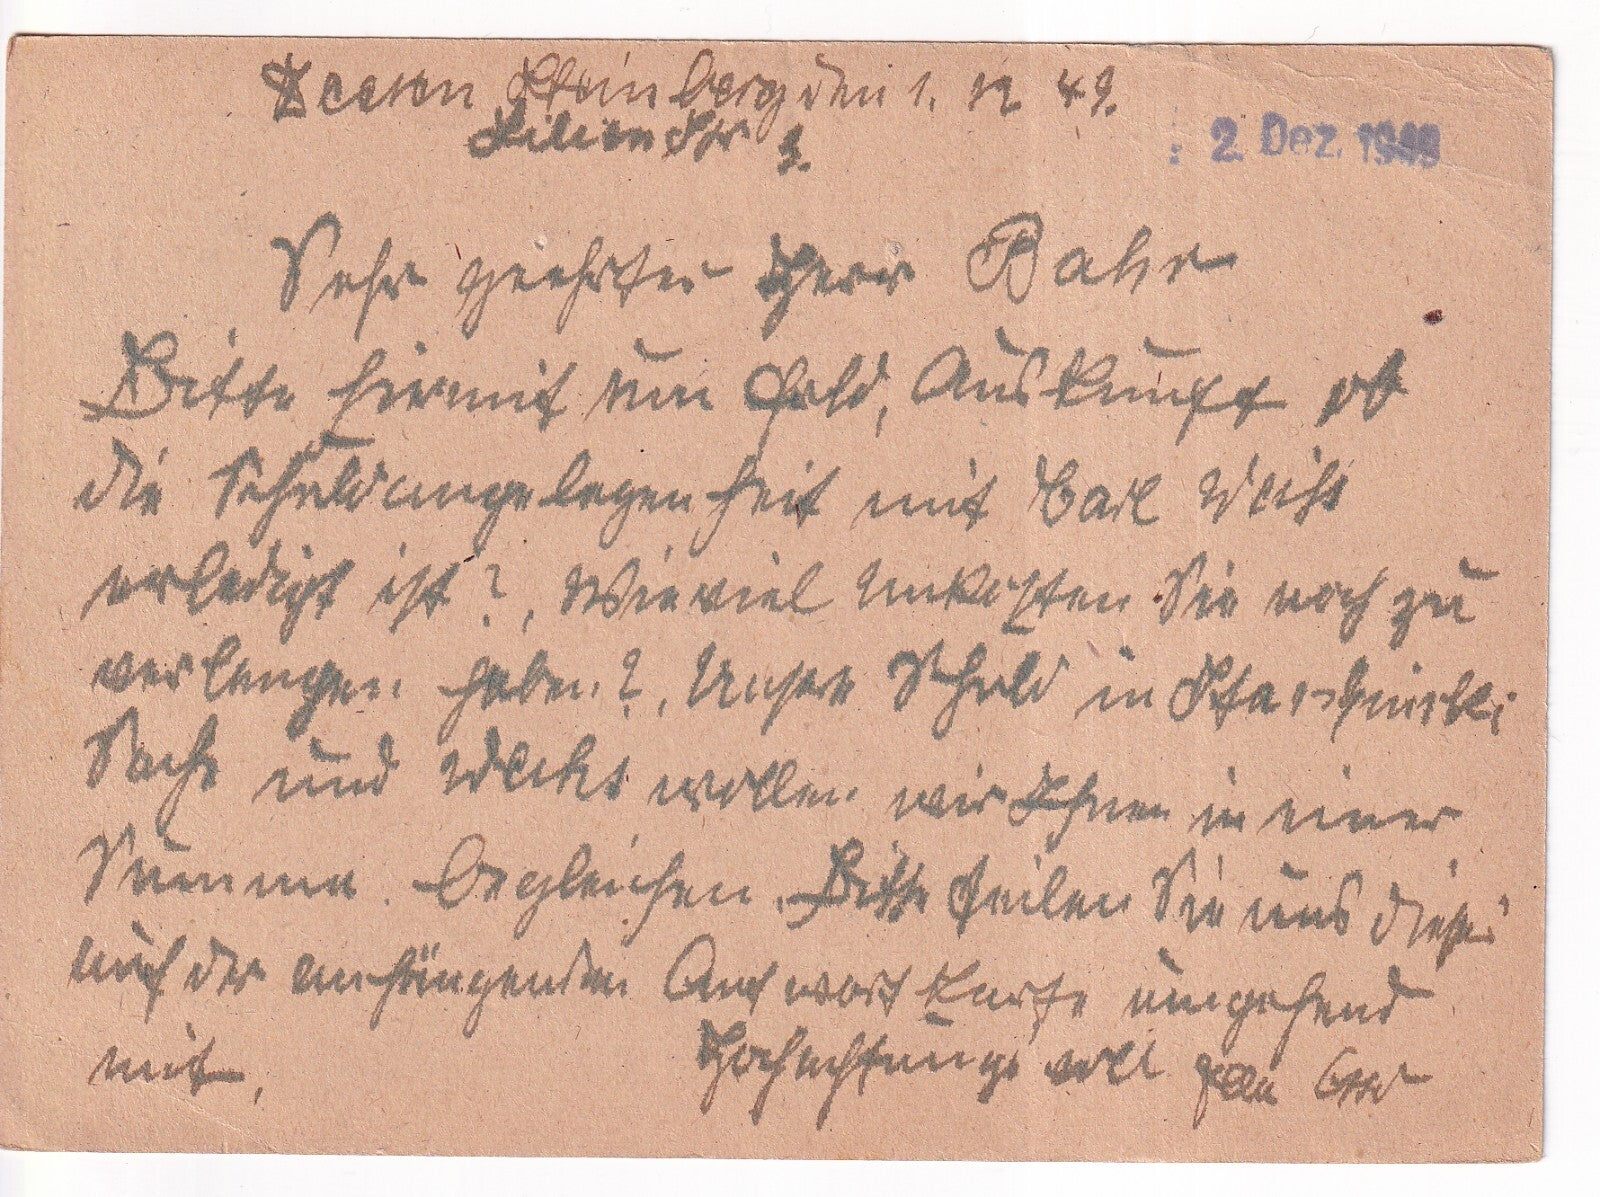 Steinberg den 1. 12 49.
Lilienstr 3.
2. Dez. 1949
Sehr geehrter Herr Bahr
Bitte hiermit um Auskunft ob
die Schuldangelegenheit mit Carl
erledigt ist?, Wieviel Unkosten Sie noch zu
verlangen haben?, Unsere Schuld in
Sache und wollen wir Ihnen in einer
Summe. begleichen. Bitte teilen Sie uns diese
auf der anhängenden Antwort Karte umgehend
mit.
Hochachtungsvoll